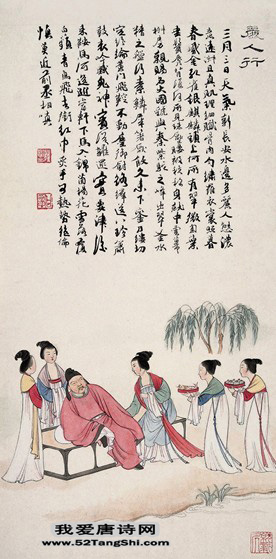 麗人行
三月三日天氣新長安水邊多麗人態濃
意遠淑且真肌理細膩骨肉勻繡羅衣裳照暮
春蹙金孔雀銀麒麟頭上何所有翠
葉垂鬢唇背後何所見珠壓腰衱穩稱身就中雲幕
椒房親賜名大國虢與秦紫駝之峰出翠釜水
精之盤行素鱗犀箸厭飫久未下鸞刀縷切
空紛綸黃門飛鞚不動塵御廚絡繹送八珍簫
鼓哀吟感鬼神賓從雜遝實要津後
來鞍馬何逡巡當軒下馬入錦茵楊花雪落覆
白蘋青鳥飛去銜紅巾炙手可熱勢絕倫
慎莫近前丞相嗔
我爱唐诗网
www.52TangShi.com